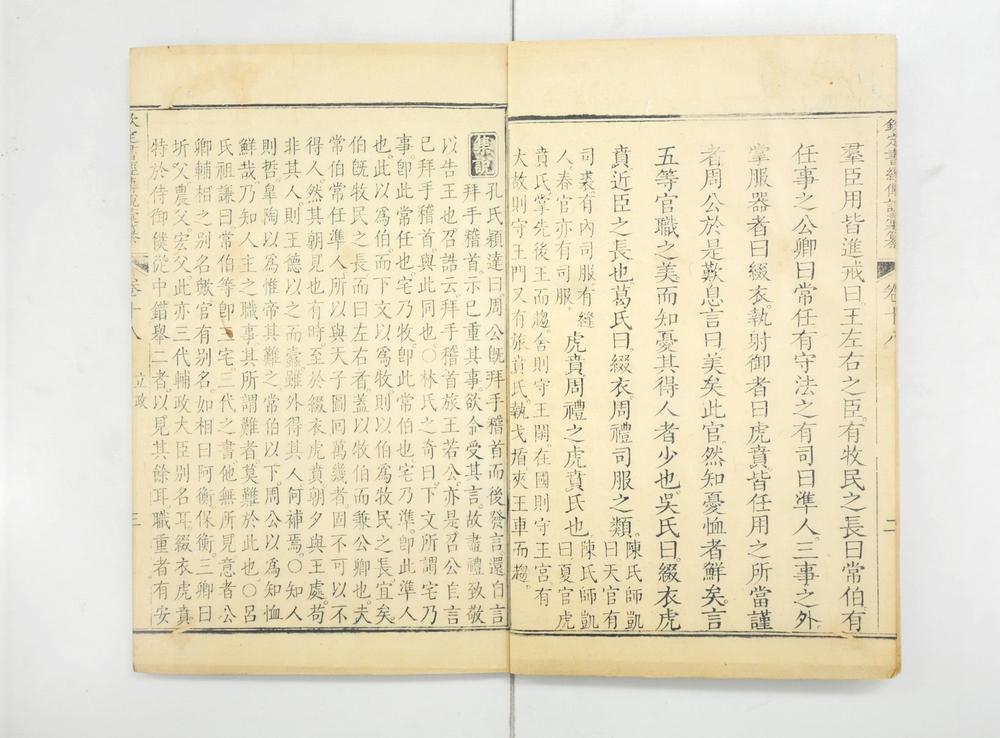 欽定書經傳說彙纂 卷十八 二
羣臣用皆進戒曰王左右之臣有牧民之長曰常伯有
任事之公卿曰常任有守法之有司曰準人三事之外
掌服器者曰綴衣執射御者曰虎賁皆任用之所當謹
者周公於是歎息言曰美矣此官然知憂恤者鮮矣言
五等官職之美而知憂其得人者少也吳氏曰綴衣虎
賁近臣之長也葛氏曰綴衣周禮司服之類陳氏師凱曰天官有
司裘有內司服有縫人春官亦有司服虎賁周禮之虎賁氏也陳氏師凱曰夏官虎
賁氏掌先後王而趨舍則守王閑在國則守王宮有
大故則守王門又有旅賁氏執戈盾夾王車而趨
集說 孔氏穎達曰周公旣拜手稽首而後發言還自言
拜手稽首示已重其事欲令受其言故盡禮致敬
以告王也召誥云拜手稽首旅王若公亦是召公自言
已拜手稽首與此同也○林氏之奇曰下文所謂宅乃
事卽此常任也宅乃牧卽此常伯也宅乃準卽此準人
也此以爲伯而下文以爲牧則以伯爲牧民之長宜矣
伯旣牧民之長而曰左右者蓋以牧伯而兼公卿也夫
常伯常任準人所以與天子圖回萬幾者固不可以不
得人然其朝見也有時至於綴衣虎賁朝夕與王處苟
非其人則王德以之而蠹雖外得其人何補焉○知人
則哲皐陶以爲惟帝其難之常伯以下周公以爲知恤
鮮哉乃知人主之職事其所謂難者莫難於此也○呂
氏祖謙曰常伯等卽三宅三代之書他無所見意者公
卿輔相之别名歟官有别名如相曰阿衡保衡三卿曰
圻父農父宏父此亦三代輔政大臣别名耳綴衣虎賁
特於侍御僕從中錯舉二者以見其餘耳職重者有安
欽定書經傳說彙纂 卷十八 立政 三